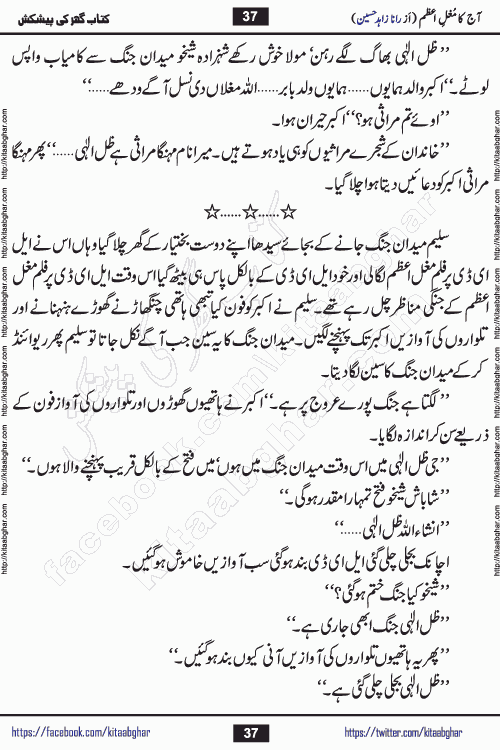 آج کا مُغلِ اعظم (از رانا زاہد حسین)
37
کتاب گھر کی پیشکش
’’ظل الٰہی بھاگ لگے رہن‘ مولا خوش رکھے شہزادہ شیخو میدان جنگ سے کامیاب واپس
لوٹے۔‘‘ اکبر ولد ہمایوں...... ہمایوں ولد بابر ...... اللہ مغلاں دی نسل آگے ودھے......‘‘
’’اوئے تم مراثی ہو؟‘‘ اکبر حیران ہوا۔
’’خاندان کے شجرے مراثیوں کو ہی یاد ہوتے ہیں۔ میرا نام مہنگا مراثی ہے ظل الٰہی......‘‘ پھر مہنگا
مراثی اکبر کو دعائیں دیتا ہوا چلا گیا۔
☆......☆......☆
سلیم میدان جنگ جانے کے بجائے سیدھا اپنے دوست بختیار کے گھر چلا گیا وہاں اس نے ایل
ای ڈی پر فلم مغل اعظم لگا لی اور خود ایل ای ڈی کے بالکل پاس ہی بیٹھ گیا اس وقت ایل ای ڈی پر فلم مغل
اعظم کے جنگی مناظر چل رہے تھے۔ سلیم نے اکبر کو فون کیا تبھی ہاتھی چنگھاڑنے گھوڑے ہنہنانے اور
تلواروں کی آوازیں اکبر تک پہنچنے لگیں۔ میدان جنگ کا یہ سین جب آگے نکل جاتا تو سلیم پھر ریوائنڈ
کر کے میدان جنگ کا سین لگا دیتا۔
’’لگتا ہے جنگ پورے عروج پر ہے۔‘‘ اکبر نے ہاتھیوں گھوڑوں اور تلواروں کی آواز فون کے
ذریعے سن کر اندازہ لگایا۔
’’جی ظل الٰہی میں اس وقت میدان جنگ میں ہوں‘ میں فتح کے بالکل قریب پہنچنے والا ہوں۔‘‘
’’شاباش شیخو فتح تمہارا مقدر ہو گی۔‘‘
’’انشاء اللہ ظل الٰہی......‘‘
اچانک بجلی چلی گئی ایل ای ڈی بند ہو گئی سب آوازیں خاموش ہو گئیں۔
’’شیخو کیا جنگ ختم ہو گئی؟‘‘
’’ظل الٰہی جنگ ابھی جاری ہے۔‘‘
’’پھر یہ ہاتھیوں تلواروں کی آوازیں آنی کیوں بند ہو گئیں۔‘‘
’’ظل الٰہی بجلی چلی گئی ہے۔‘‘
https://facebook.com/kitaabghar
37
https://twitter.com/kitaabghar
http://kitaabghar.com
http://kitaabghar.com
http://kitaabghar.com
http://kitaabghar.com
http://kitaabghar.com
http://kitaabghar.com
http://kitaabghar.com
http://kitaabghar.com
http://kitaabghar.com
http://kitaabghar.com
http://kitaabghar.com
http://kitaabghar.com